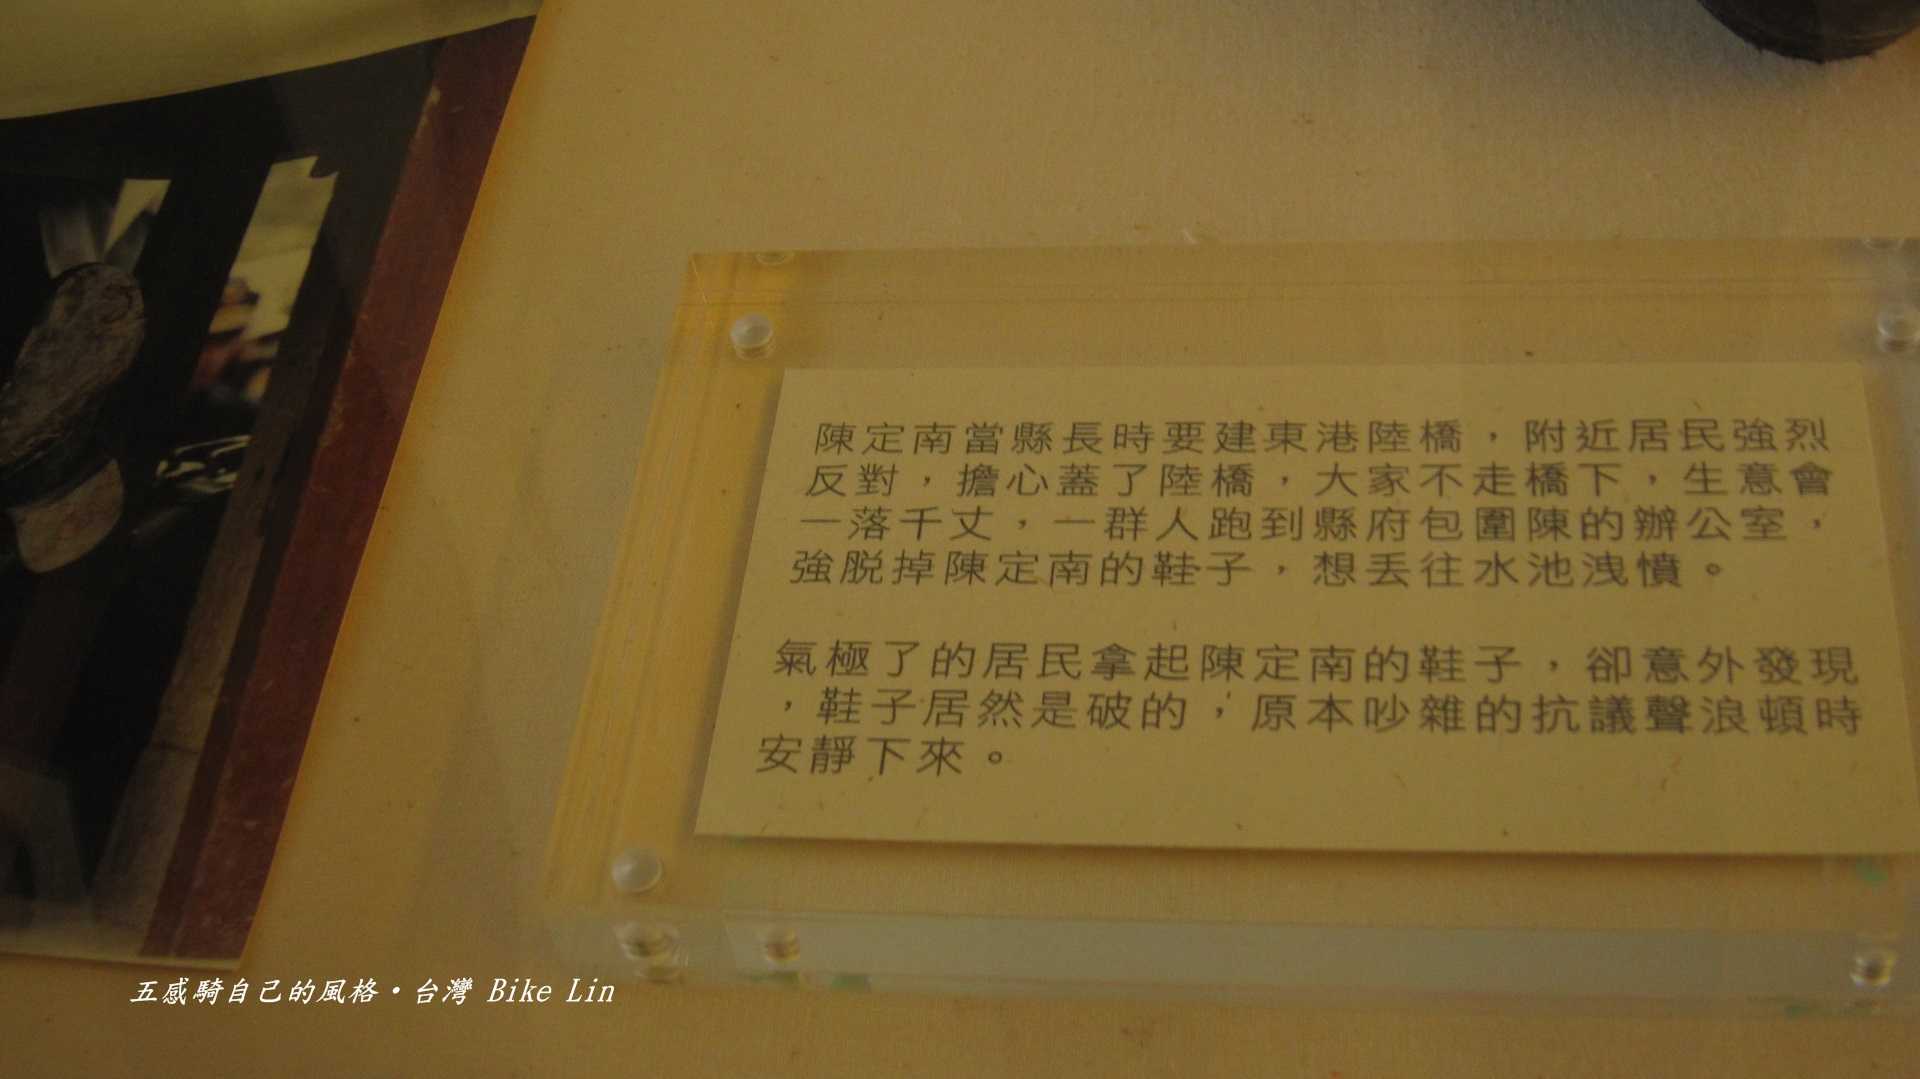 陳定南當縣長時要建東港陸橋，附近居民強烈
反對，擔心蓋了陸橋，大家不走橋下，生意會
一落千丈，一群人跑到縣府包圍陳的辦公室，
強脫掉陳定南的鞋子，想丟往水池洩憤。
氣極了的居民拿起陳定南的鞋子，卻意外發現
，鞋子居然是破的，原本吵雜的抗議聲浪頓時
安靜下來。
五感騎自己的風格・台灣 Bike Lin